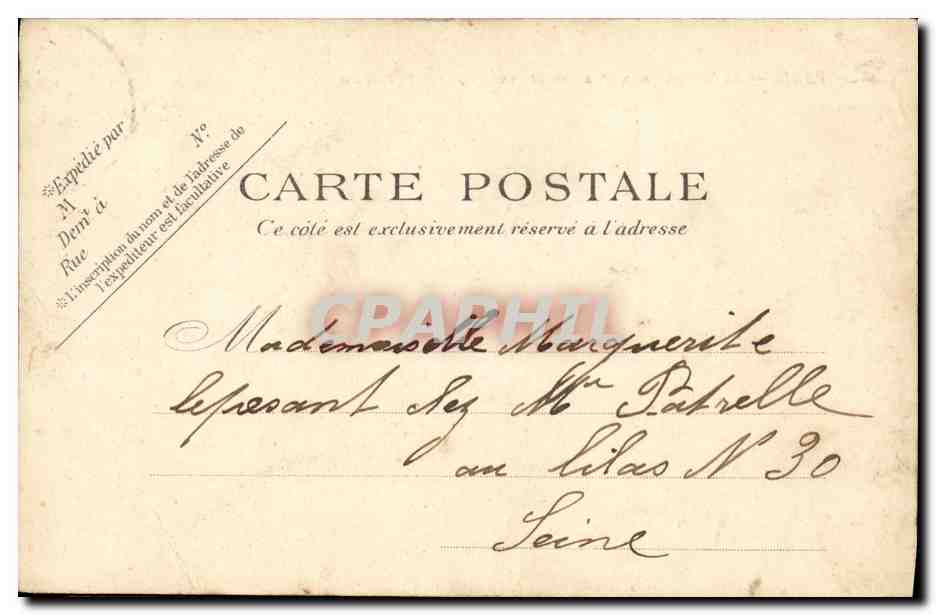 ※Expédié par
M
Demt à
Rue
N°
※L'inscription du nom et de l'adresse de
l'expéditeur est facultative
CARTE POSTALE
Ce côté est exclusivement réservé à l'adresse
CPAPHIL
Mademoiselle Marguerite
lepesant chez Mr Patrelle
au lilas N 30
Seine